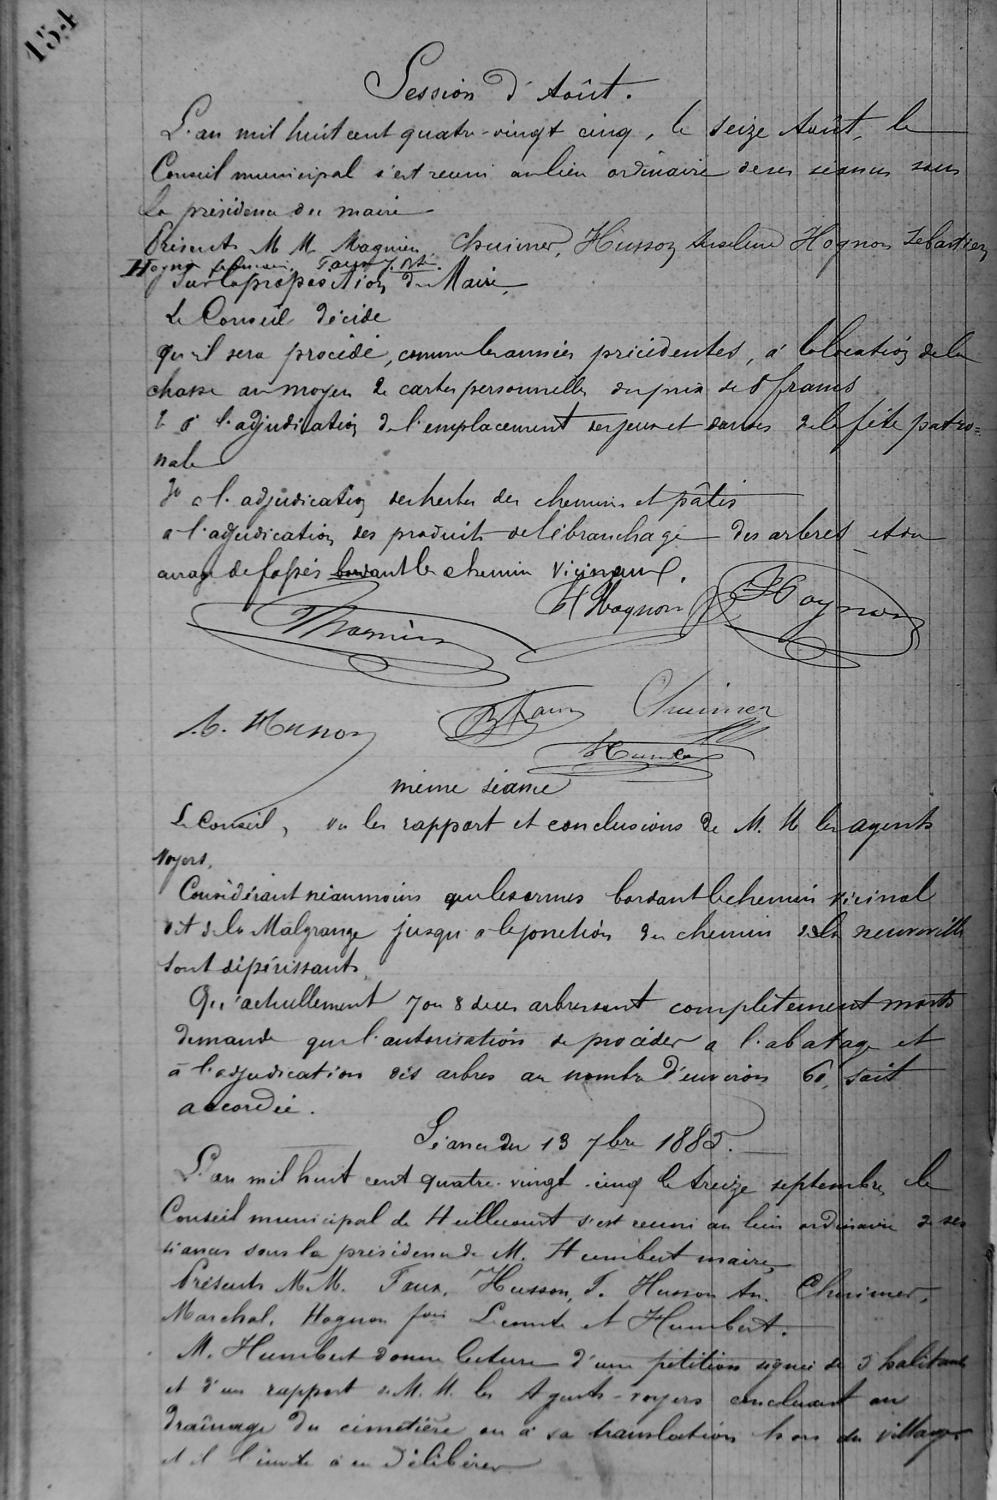 154
Session d'Août.
L'an mil huit cent quatre-vingt cinq, le seize Août, le
Conseil municipal s'est reuni au lieu ordinaire de ses séances sous
la présidence du maire
Présents M M. Magnien, Chuimer, Husson Anselme Hognon Sebastien
Hognon Faux J. Bte.
Sur la proposition du Maire,
Le Conseil décide
qu'il sera procédé, comme les années précédentes, à la location de la
chasse au moyen de cartes personnelles du prix de 8 francs
2° à l'adjudication de l'emplacement des jeux et danses de la fête patro=
nale
3° à l'adjudication des herbes des chemins et pâtis
à l'adjudication des produits de l'ébranchage des arbres et du
curage de fossés bordant les chemins vicinaux.
Magnien H Hognon Hognon
A. Husson B Faux Chuimer
Humbert
même séance
Le Conseil, vu les rapport et conclusions de M. M les agents
voyers,
Considérant néanmoins que les ormes bordant le chemin vicinal
dit de la Malgrange jusqu'à la jonction du chemin de la neuveville
sont dépérissants,
Qu'actuellement 7 ou 8 de ces arbres sont complètement morts
demande que l'autorisation de procéder a l'abatage et
à l'adjudication des arbres au nombre d'environ 60, soit
accordée.
Séance du 13 7bre 1885.
L'an mil huit cent quatre-vingt-cinq le treize septembre, le
Conseil municipal de Huillecourt s'est reuni au lieu ordinaire de ses
séances sous la présidence de M. Humbert maire,
Présents M.M. Faux, Husson, T. Husson An. Chuimer,
Marchal, Hognon Lecomte et Humbert.
M. Humbert donne lecture d'une pétition signée de 3 habitants
et d'un rapport de M. M. les Agents-voyers concluant au
drainage du cimetière ou à sa translation hors du village
et il l'invite à en délibérer